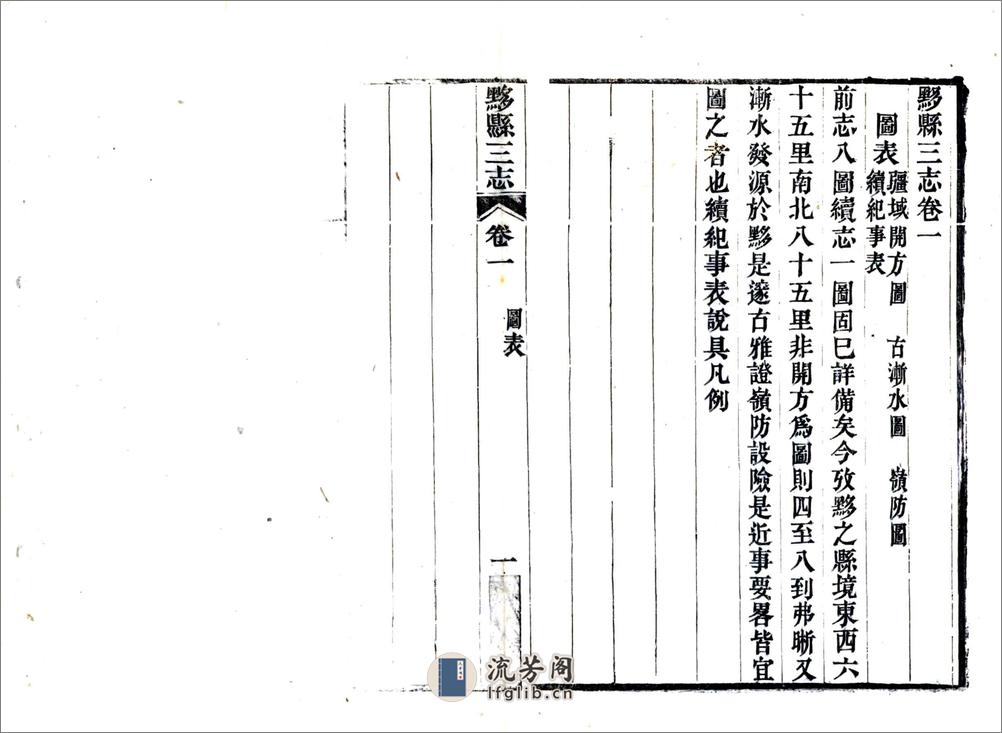 黟縣三志卷一
圖表 疆域開方圖 古漸水圖 嶺防圖
續紀事表
前志八圖續志一圖固已詳備矣今攷黟之縣境東西六
十五里南北八十五里非開方爲圖則四至八到弗晰又
漸水發源於黟是邃古雅證嶺防設險是近事要畧皆宜
圖之者也續紀事表說具凡例
黟縣三志 卷一 圖表 一
流芳阁
lfglib.cn